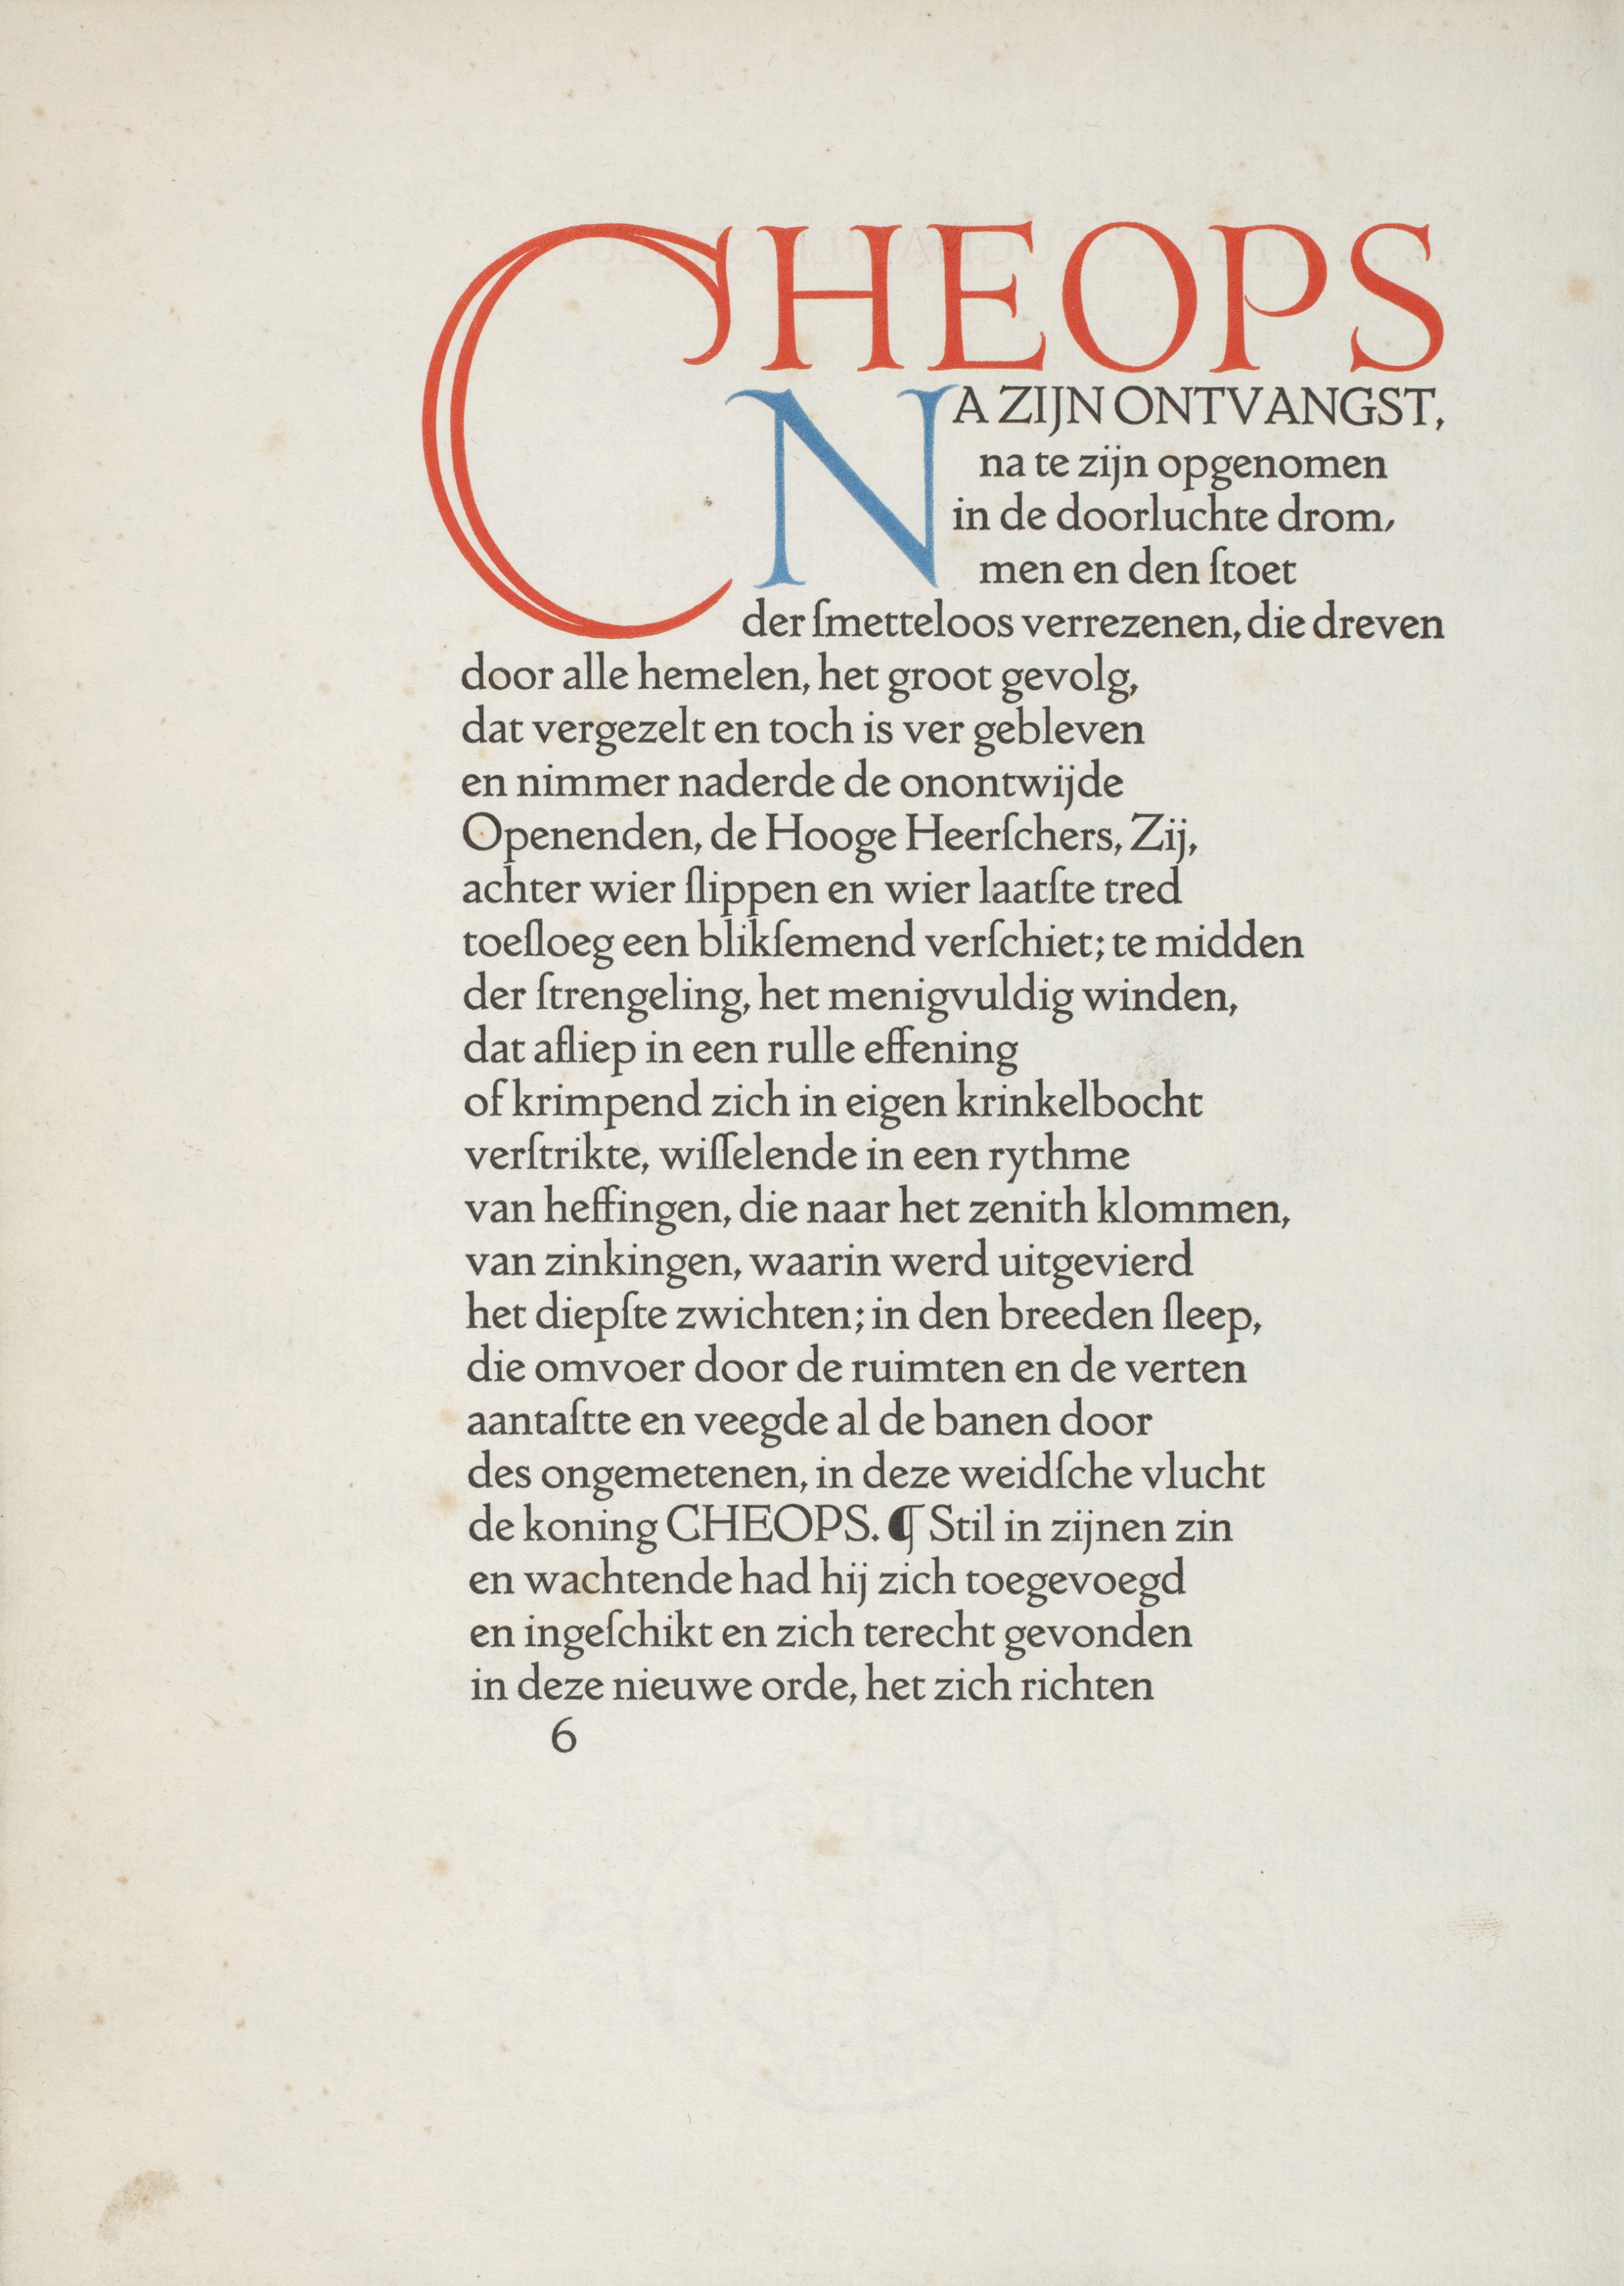 CHEOPS
NA ZIJN ONTVANGST,
na te zijn opgenomen
in de doorluchte drom,
men en den ſtoet
der ſmetteloos verrezenen, die dreven
door alle hemelen, het groot gevolg,
dat vergezelt en toch is ver gebleven
en nimmer naderde de onontwijde
Openenden, de Hooge Heerſchers, Zij,
achter wier ſlippen en wier laatſte tred
toeſloeg een blikſemend verſchiet; te midden
der ſtrengeling, het menigvuldig winden,
dat afliep in een rulle effening
of krimpend zich in eigen krinkelbocht
verſtrikte, wiſſelende in een rythme
van heffingen, die naar het zenith klommen,
van zinkingen, waarin werd uitgevierd
het diepſte zwichten; in den breeden ſleep,
die omvoer door de ruimten en de verten
aantaſtte en veegde al de banen door
des ongemetenen, in deze weidſche vlucht
de koning CHEOPS. ¶ Stil in zijnen zin
en wachtende had hij zich toegevoegd
en ingeſchikt en zich terecht gevonden
in deze nieuwe orde, het zich richten
6